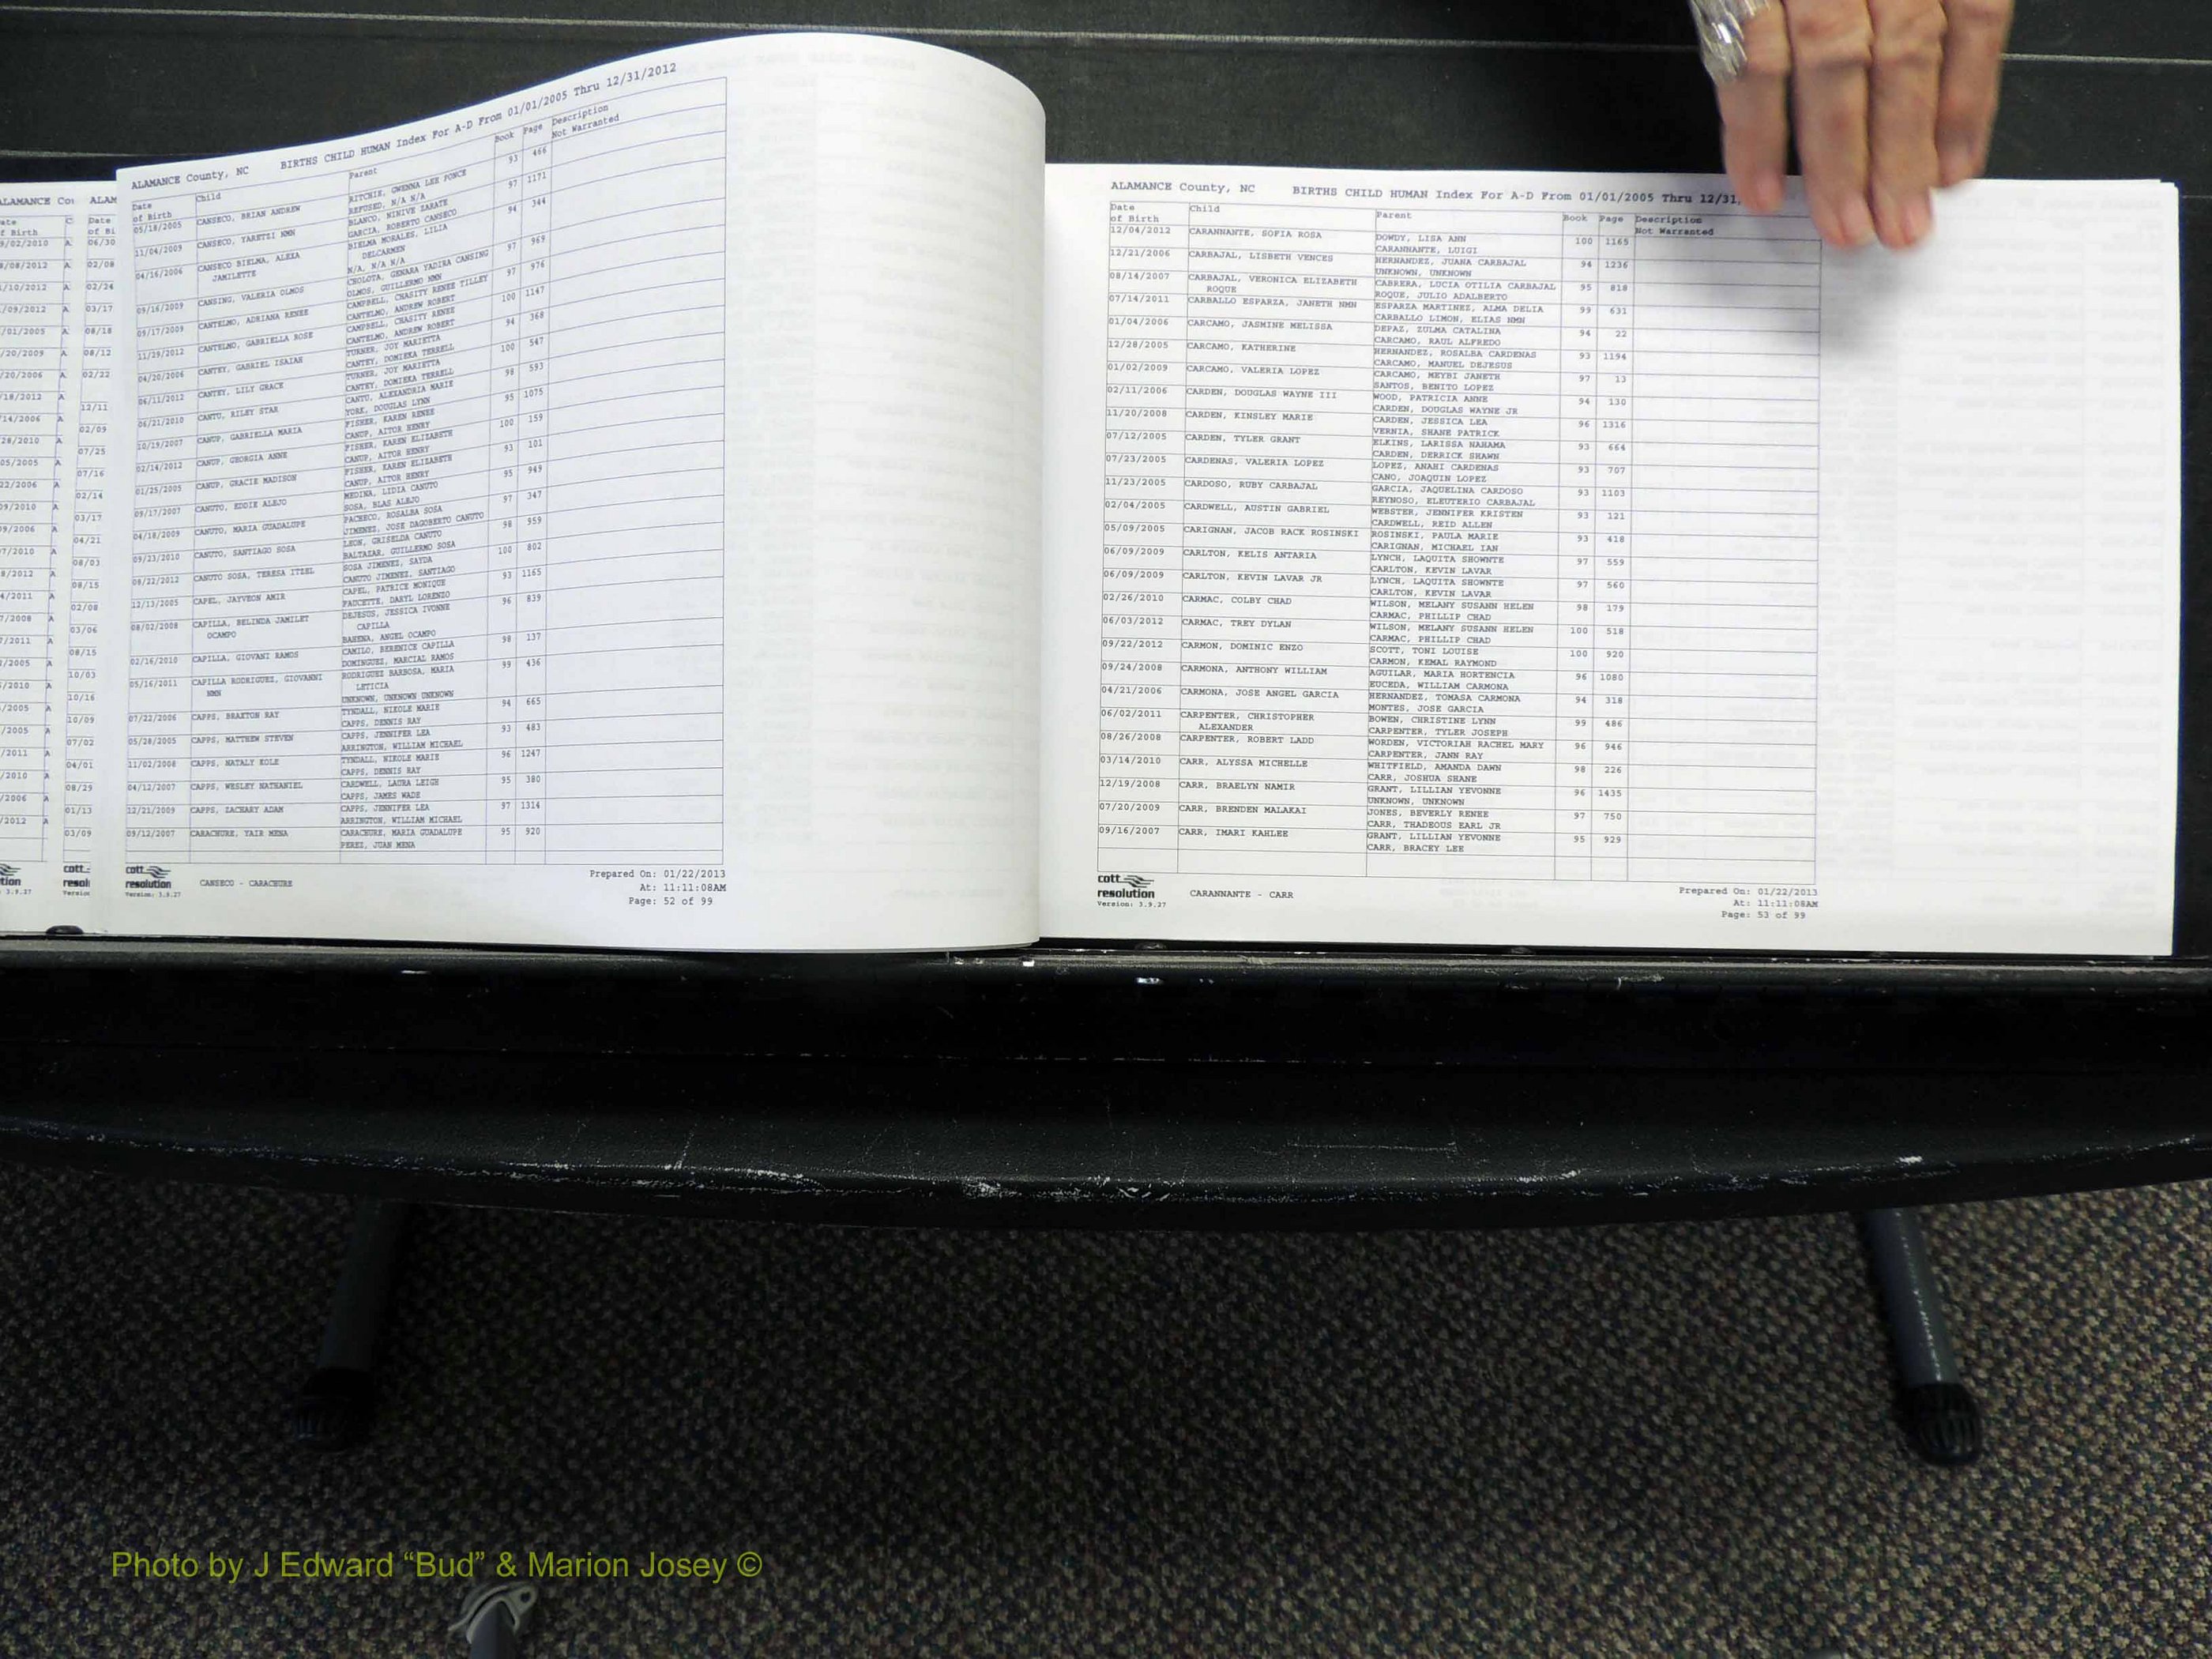 ALAMANCE County, NC BIRTHS CHILD HUMAN Index For A-D From 01/01/2005 Thru 12/31/2012
Date of Birth Child Parent Book Page Description Not Warranted
05/18/2005 CANSECO, BRIAN ANDREW RITCHIE, GWENNA LEE PONCE 93 466
REFUSED, N/A N/A
11/04/2009 CANSECO, YARETZI NMN BLANCO, NINIVE ZARATE 97 1171
GARCIA, ROBERTO CANSECO
04/16/2006 CANSECO BIELMA, ALEXA JAMILETTE BIELMA MORALES, LILIA DELCARMEN 94 344
N/A, N/A N/A
09/16/2009 CANSING, VALERIA OLMOS CHOLOTA, GENARA YADIRA CANSING 97 969
OLMOS, GUILLERMO NMN
09/17/2009 CANTELMO, ADRIANA RENEE CAMPBELL, CHASITY RENEE TILLEY 97 976
CANTELMO, ANDREW ROBERT
11/29/2012 CANTELMO, GABRIELLA ROSE CAMPBELL, CHASITY RENEE 100 1147
CANTELMO, ANDREW ROBERT
04/20/2006 CANTEY, GABRIEL ISAIAH TURNER, JOY MARIETTA 94 368
CANTEY, DOMIEKA TERRELL
06/11/2012 CANTEY, LILY GRACE TURNER, JOY MARIETTA 100 547
CANTEY, DOMIEKA TERRELL
06/21/2010 CANTU, RILEY STAR CANTU, ALEXANDRIA MARIE 98 593
YORK, DOUGLAS LYNN
10/19/2007 CANUP, GABRIELLA MARIA FISHER, KAREN RENEE 95 1075
CANUP, AITOR HENRY
02/14/2012 CANUP, GEORGIA ANNE FISHER, KAREN ELIZABETH 100 159
CANUP, AITOR HENRY
01/25/2005 CANUP, GRACIE MADISON FISHER, KAREN ELIZABETH 93 101
CANUP, AITOR HENRY
09/17/2007 CANUTO, EDDIE ALEJO MEDINA, LIDIA CANUTO 95 949
SOSA, BLAS ALEJO
04/18/2009 CANUTO, MARIA GUADALUPE PACHECO, ROSALBA SOSA 97 347
JIMENEZ, JOSE DAGOBERTO CANUTO
09/23/2010 CANUTO, SANTIAGO SOSA LEON, GRISELDA CANUTO 98 959
BALTAZAR, GUILLERMO SOSA
08/22/2012 CANUTO SOSA, TERESA ITZEL SOSA JIMENEZ, SAYDA 100 802
CANUTO JIMENEZ, SANTIAGO
12/13/2005 CAPEL, JAYVEON AMIR CAPEL, PATRICE MONIQUE 93 1165
FAUCETTE, DARYL LORENZO
08/02/2008 CAPILLA, BELINDA JAMILET OCAMPO DEJESUS, JESSICA IVONNE CAPILLA 96 839
BAHENA, ANGEL OCAMPO
02/16/2010 CAPILLA, GIOVANI RAMOS CAMILO, BERENICE CAPILLA 98 137
DOMINGUEZ, MARCIAL RAMOS
05/16/2011 CAPILLA RODRIGUEZ, GIOVANNI NMN RODRIGUEZ BARBOSA, MARIA LETICIA 99 436
UNKNOWN, UNKNOWN UNKNOWN
07/22/2006 CAPPS, BRAXTON RAY TYNDALL, NIKOLE MARIE 94 665
CAPPS, DENNIS RAY
05/28/2005 CAPPS, MATTHEW STEVEN CAPPS, JENNIFER LEA 93 483
ARRINGTON, WILLIAM MICHAEL
11/02/2008 CAPPS, NATALY KOLE TYNDALL, NIKOLE MARIE 96 1247
CAPPS, DENNIS RAY
04/12/2007 CAPPS, WESLEY NATHANIEL CARDWELL, LAURA LEIGH 95 380
CAPPS, JAMES WADE
12/21/2009 CAPPS, ZACHARY ADAM CAPPS, JENNIFER LEA 97 1314
ARRINGTON, WILLIAM MICHAEL
09/12/2007 CARACHURE, YAIR MENA CARACHURE, MARIA GUADALUPE 95 920
PEREZ, JUAN MENA
cott resolution Version: 3.9.27
CANSECO - CARACHURE
Prepared On: 01/22/2013
At: 11:11:08AM
Page: 52 of 99
ALAMANCE County, NC BIRTHS CHILD HUMAN Index For A-D From 01/01/2005 Thru 12/31
Date of Birth Child Parent Book Page Description Not Warranted
12/04/2012 CARANNANTE, SOFIA ROSA DOWDY, LISA ANN 100 1165
CARANNANTE, LUIGI
12/21/2006 CARBAJAL, LISBETH VENCES HERNANDEZ, JUANA CARBAJAL 94 1236
UNKNOWN, UNKNOWN
08/14/2007 CARBAJAL, VERONICA ELIZABETH ROQUE CABRERA, LUCIA OTILIA CARBAJAL 95 818
ROQUE, JULIO ADALBERTO
07/14/2011 CARBALLO ESPARZA, JANETH NMN ESPARZA MARTINEZ, ALMA DELIA 99 631
CARBALLO LIMON, ELIAS NMN
01/04/2006 CARCAMO, JASMINE MELISSA DEPAZ, ZULMA CATALINA 94 22
CARCAMO, RAUL ALFREDO
12/28/2005 CARCAMO, KATHERINE HERNANDEZ, ROSALBA CARDENAS 93 1194
CARCAMO, MANUEL DEJESUS
01/02/2009 CARCAMO, VALERIA LOPEZ CARCAMO, MEYBI JANETH 97 13
SANTOS, BENITO LOPEZ
02/11/2006 CARDEN, DOUGLAS WAYNE III WOOD, PATRICIA ANNE 94 130
CARDEN, DOUGLAS WAYNE JR
11/20/2008 CARDEN, KINSLEY MARIE CARDEN, JESSICA LEA 96 1316
VERNIA, SHANE PATRICK
07/12/2005 CARDEN, TYLER GRANT ELKINS, LARISSA NAHAMA 93 664
CARDEN, DERRICK SHAWN
07/23/2005 CARDENAS, VALERIA LOPEZ LOPEZ, ANAHI CARDENAS 93 707
CANO, JOAQUIN LOPEZ
11/23/2005 CARDOSO, RUBY CARBAJAL GARCIA, JAQUELINA CARDOSO 93 1103
REYNOSO, ELEUTERIO CARBAJAL
02/04/2005 CARDWELL, AUSTIN GABRIEL WEBSTER, JENNIFER KRISTEN 93 121
CARDWELL, REID ALLEN
05/09/2005 CARIGNAN, JACOB RACK ROSINSKI ROSINSKI, PAULA MARIE 93 418
CARIGNAN, MICHAEL IAN
06/09/2009 CARLTON, KELIS ANTARIA LYNCH, LAQUITA SHOWNTE 97 559
CARLTON, KEVIN LAVAR
06/09/2009 CARLTON, KEVIN LAVAR JR LYNCH, LAQUITA SHOWNTE 97 560
CARLTON, KEVIN LAVAR
02/26/2010 CARMAC, COLBY CHAD WILSON, MELANY SUSANN HELEN 98 179
CARMAC, PHILLIP CHAD
06/03/2012 CARMAC, TREY DYLAN WILSON, MELANY SUSANN HELEN 100 518
CARMAC, PHILLIP CHAD
09/22/2012 CARMON, DOMINIC ENZO SCOTT, TONI LOUISE 100 920
CARMON, KEMAL RAYMOND
09/24/2008 CARMONA, ANTHONY WILLIAM AGUILAR, MARIA HORTENCIA 96 1080
EUCEDA, WILLIAM CARMONA
04/21/2006 CARMONA, JOSE ANGEL GARCIA HERNANDEZ, TOMASA CARMONA 94 318
MONTES, JOSE GARCIA
06/02/2011 CARPENTER, CHRISTOPHER ALEXANDER BOWEN, CHRISTINE LYNN 99 486
CARPENTER, TYLER JOSEPH
08/26/2008 CARPENTER, ROBERT LADD WORDEN, VICTORIAH RACHEL MARY 96 946
CARPENTER, JANN RAY
03/14/2010 CARR, ALYSSA MICHELLE WHITFIELD, AMANDA DAWN 98 226
CARR, JOSHUA SHANE
12/19/2008 CARR, BRAELYN NAMIR GRANT, LILLIAN YEVONNE 96 1435
UNKNOWN, UNKNOWN
07/20/2009 CARR, BRENDEN MALAKAI JONES, BEVERLY RENEE 97 750
CARR, THADEOUS EARL JR
09/16/2007 CARR, IMARI KAHLEE GRANT, LILLIAN YEVONNE 95 929
CARR, BRACEY LEE
cott resolution Version: 3.9.27
CARANNANTE - CARR
Prepared On: 01/22/2013
At: 11:11:08AM
Page: 53 of 99
Photo by J Edward “Bud” & Marion Josey ©